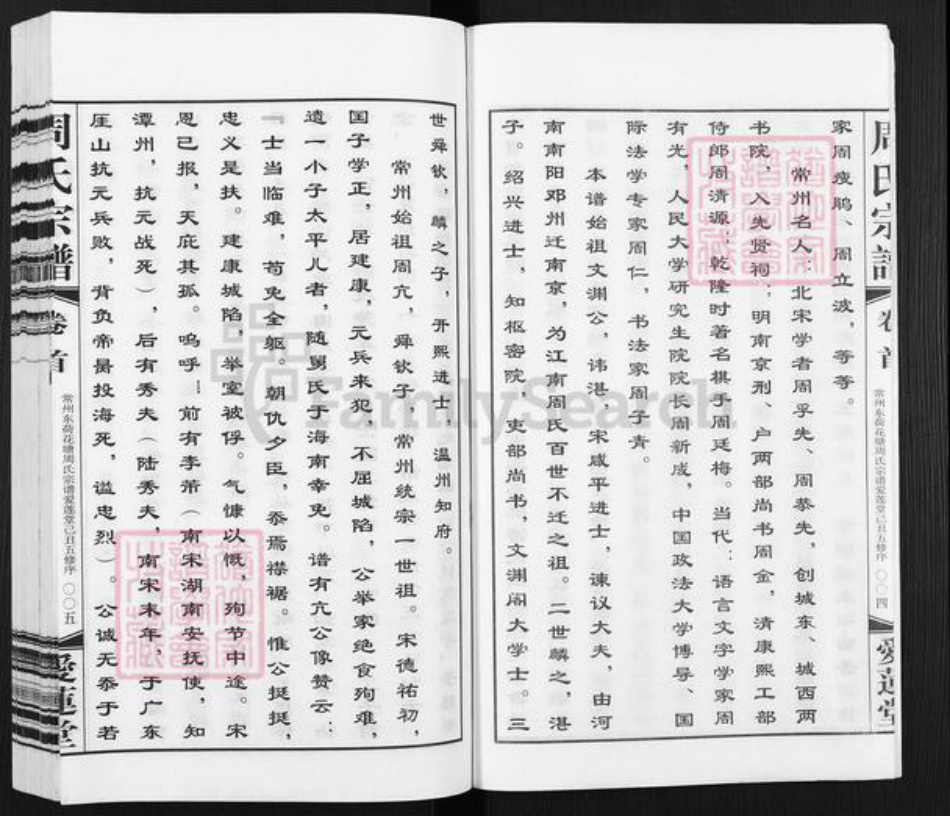 周氏宗谱
卷首
常州东荷花塘周氏宗谱爱莲堂己丑五修序
〇〇四
愛蓮堂
家周瘦鹃、周立波，等等。
常州名人：北宋学者周孚先、周恭先，创城东、城西两
书院，入先贤祠；明南京刑、户两部尚书周金，清康熙工部
侍郎周清源；乾隆时著名棋手周廷梅。当代：语言文字学家周
有光，人民大学研究生院院长周新成，中国政法大学博导、国
际法学专家周仁，书法家周子青。
本谱始祖文渊公，讳湛，宋咸平进士，谏议大夫，由河
南南阳邓州迁南京，为江南周氏百世不迁之祖。二世麟之，湛
子。绍兴进士，知枢密院，吏部尚书，文渊阁大学士。三
世舜钦，麟之子，开熙进士，温州知府。
常州始祖周亢，舜钦子，常州统宗一世祖。宋德祐初，
国子学正，居建康，元兵来犯，不屈城陷，公举家绝食殉难，
遗一小子太平儿者，随舅氏于海南幸免。谱有亢公像赞云：
『士当临难，苟免全躯。朝仇夕臣，忝焉襟裾。惟公挺挺，
忠义是扶。建康城陷，举室被俘。气慷以慨，殉节中途。宋
恩已报，天庇其孤。呜呼！前有李芾（南宋湖南安抚使，知
潭州，抗元战死），后有秀夫（陆秀夫，南宋末年，于广东
厓山抗元兵败，背负帝昺投海死，谥忠烈）。公诚无忝于若
周氏宗譜
卷首
常州东荷花塘周氏宗谱爱莲堂己丑五修序
〇〇五
愛蓮堂
FamilySearch